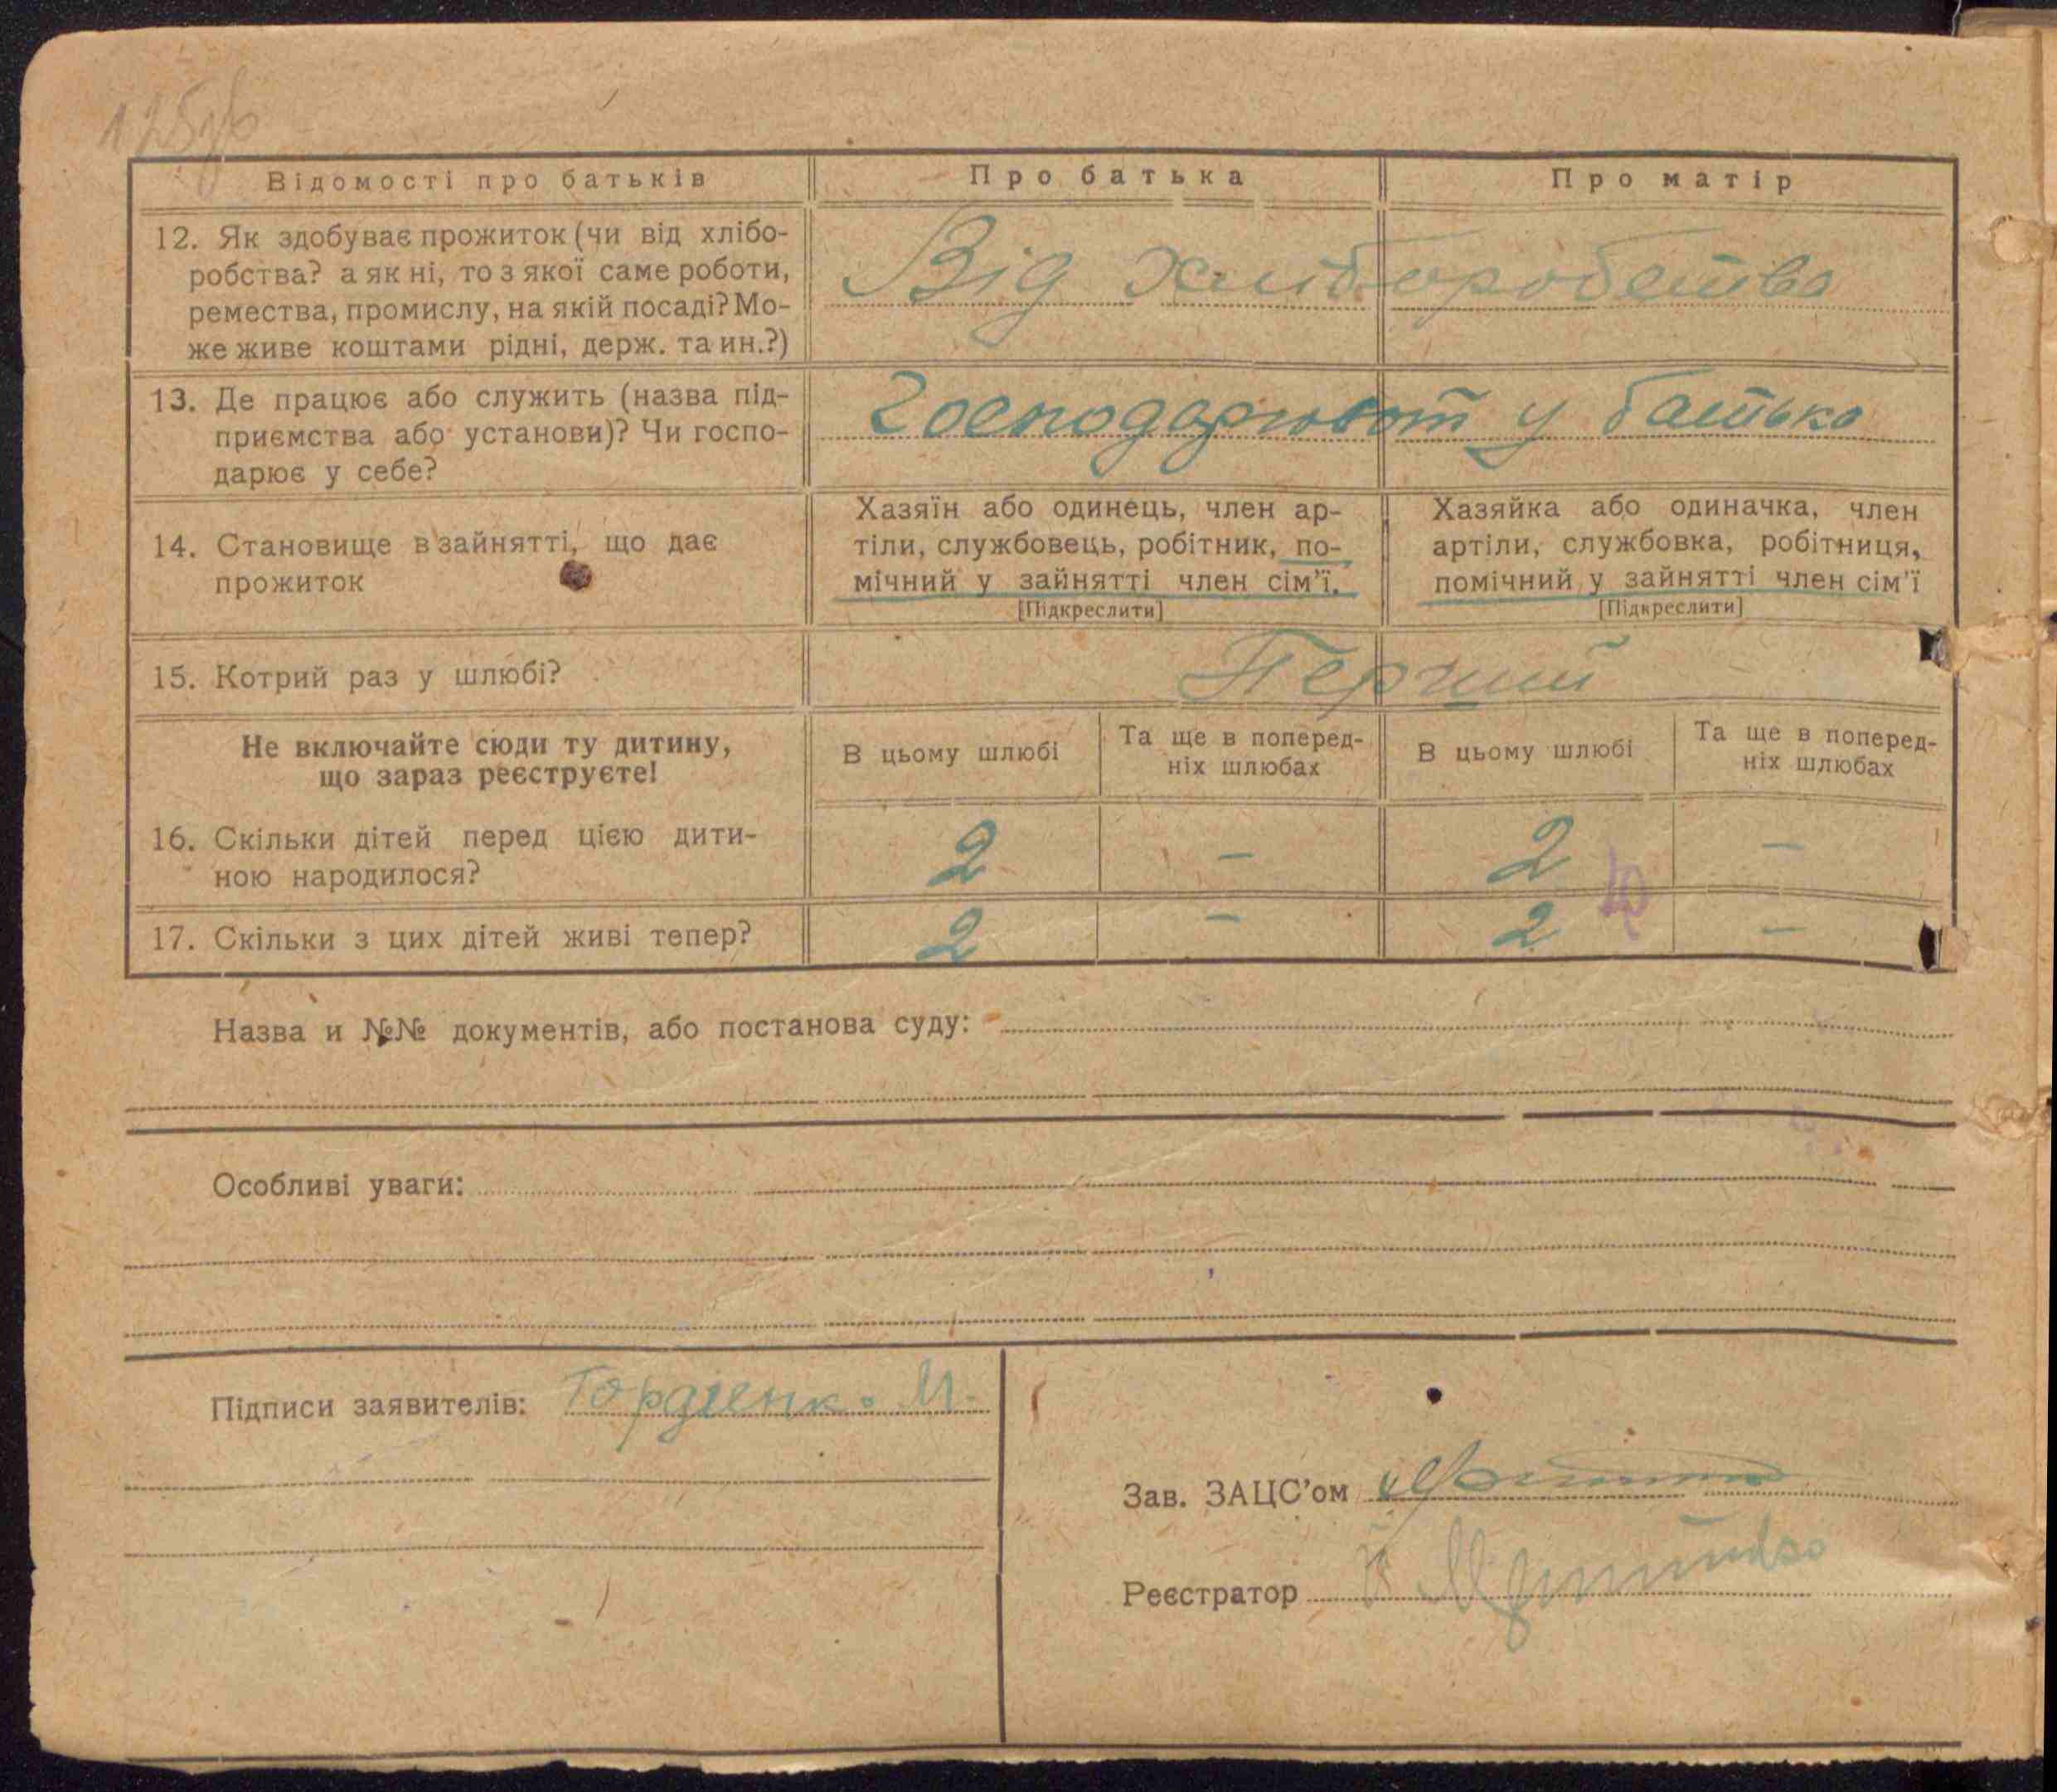 Відомості про батьків
Про батька
Про матір
12. Як здобуває прожиток (чи від хлібо-
робства? а як ні, то з якої саме роботи,
ремества, промислу, на якій посаді? Мо-
же живе коштами рідні, держ. та ин.?)
Від хліборобства
13. Де працює або служить (назва під-
приємства або установи)? Чи госпо-
дарює у себе?
Господарюют у батька
14. Становище в зайнятті, що дає
прожиток
Хазяїн або одинець, член ар-
тіли, службовець, робітник, по-
мічний у зайнятті член сім'ї.
[Підкреслити]
Хазяйка або одиначка, член
артіли, службовка, робітниця,
помічний у зайнятті член сім'ї
[Підкреслити]
15. Котрий раз у шлюбі?
Перший
Не включайте сюди ту дитину,
що зараз реєструєте!
В цьому шлюбі
Та ще в поперед-
ніх шлюбах
В цьому шлюбі
Та ще в поперед-
ніх шлюбах
16. Скільки дітей перед цією дити-
ною народилося?
2 – 2 –
17. Скільки з цих дітей живі тепер?
2 – 2 –
Назва и №№ документів, або постанова суду:
Особливі уваги:
Підписи заявителів: Гордиенко М.
Зав. ЗАЦС'ом
Реєстратор